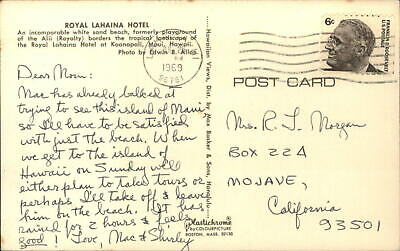 ROYAL LAHAINA HOTEL
An incomparable white sand beach, formerly playground
of the Alii (Royalty) borders the tropical landscape of
the Royal Lahaina Hotel at Kaanapali, Maui, Hawaii.
Photo by Edwin B. Allen
Dear Mom:
Mac has already balked at
trying to see this island of Maui
so I'll have to be satisfied
with just the beach. When
we get to the island of
Hawaii on Sunday we'll
either plan to take tours or
perhaps I'll take off & leave
him on the beach. Hot its
rained for 2 hours & feels
good! Love, Mac & Shirley
Hawaiian Views, Dist. by Max Basker & Sons, Honolulu
Plastichrome
by COLOURPICTURE
BOSTON, MASS. 02130
1969
6¢
FRANKLIN D. ROOSEVELT
POST CARD
Mrs. R. L. Morgan
BOX 224
MOJAVE,
California
93501